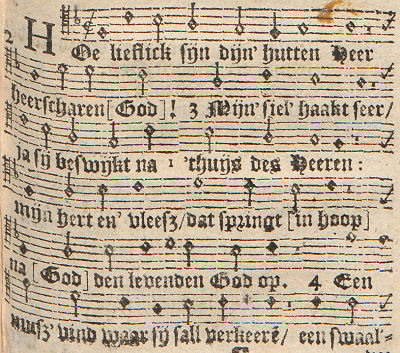 2 HOe lieflick sijn dijn' hutten Heer
heerscharen [God]! 3 Mijn' siel' haakt seer/
ja sij beswijkt na 't huijs des Heeren:
mijn hert en' vleesz/ dat springt [in hoop]
na [God] den levenden God op. 4 Een
musz' vind waar sij sall verkeerē/ een swaal=